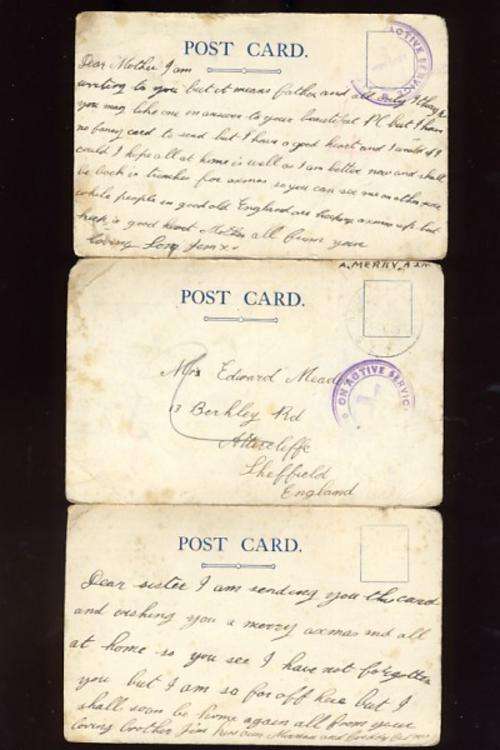 POST CARD.
Dear Mother I am
writing to you but it means father and all Only I thought
you may like one in answer to your beautiful PC but I have
no fancy card to send but I have a good heart and I would if I
could I hope all at home is well as I am better now and shall
be back in trenches for axmas so you can see me on watch
while people in good old England are keeping axmas up but
keep in good heart Mother all from your
loving Son Jim x
ACTIVE SERVICE
A. MERRY
POST CARD.
Mrs Edward Mead
13 Berkley Rd
Attercliffe
Sheffield
England
ON ACTIVE SERVIC
POST CARD.
Dear sister I am sending you this card
and wishing you a merry axmas and all
at home so you see I have not forgotten
you but I am so far off here but I
shall soon be home again all from your
loving brother Jim and